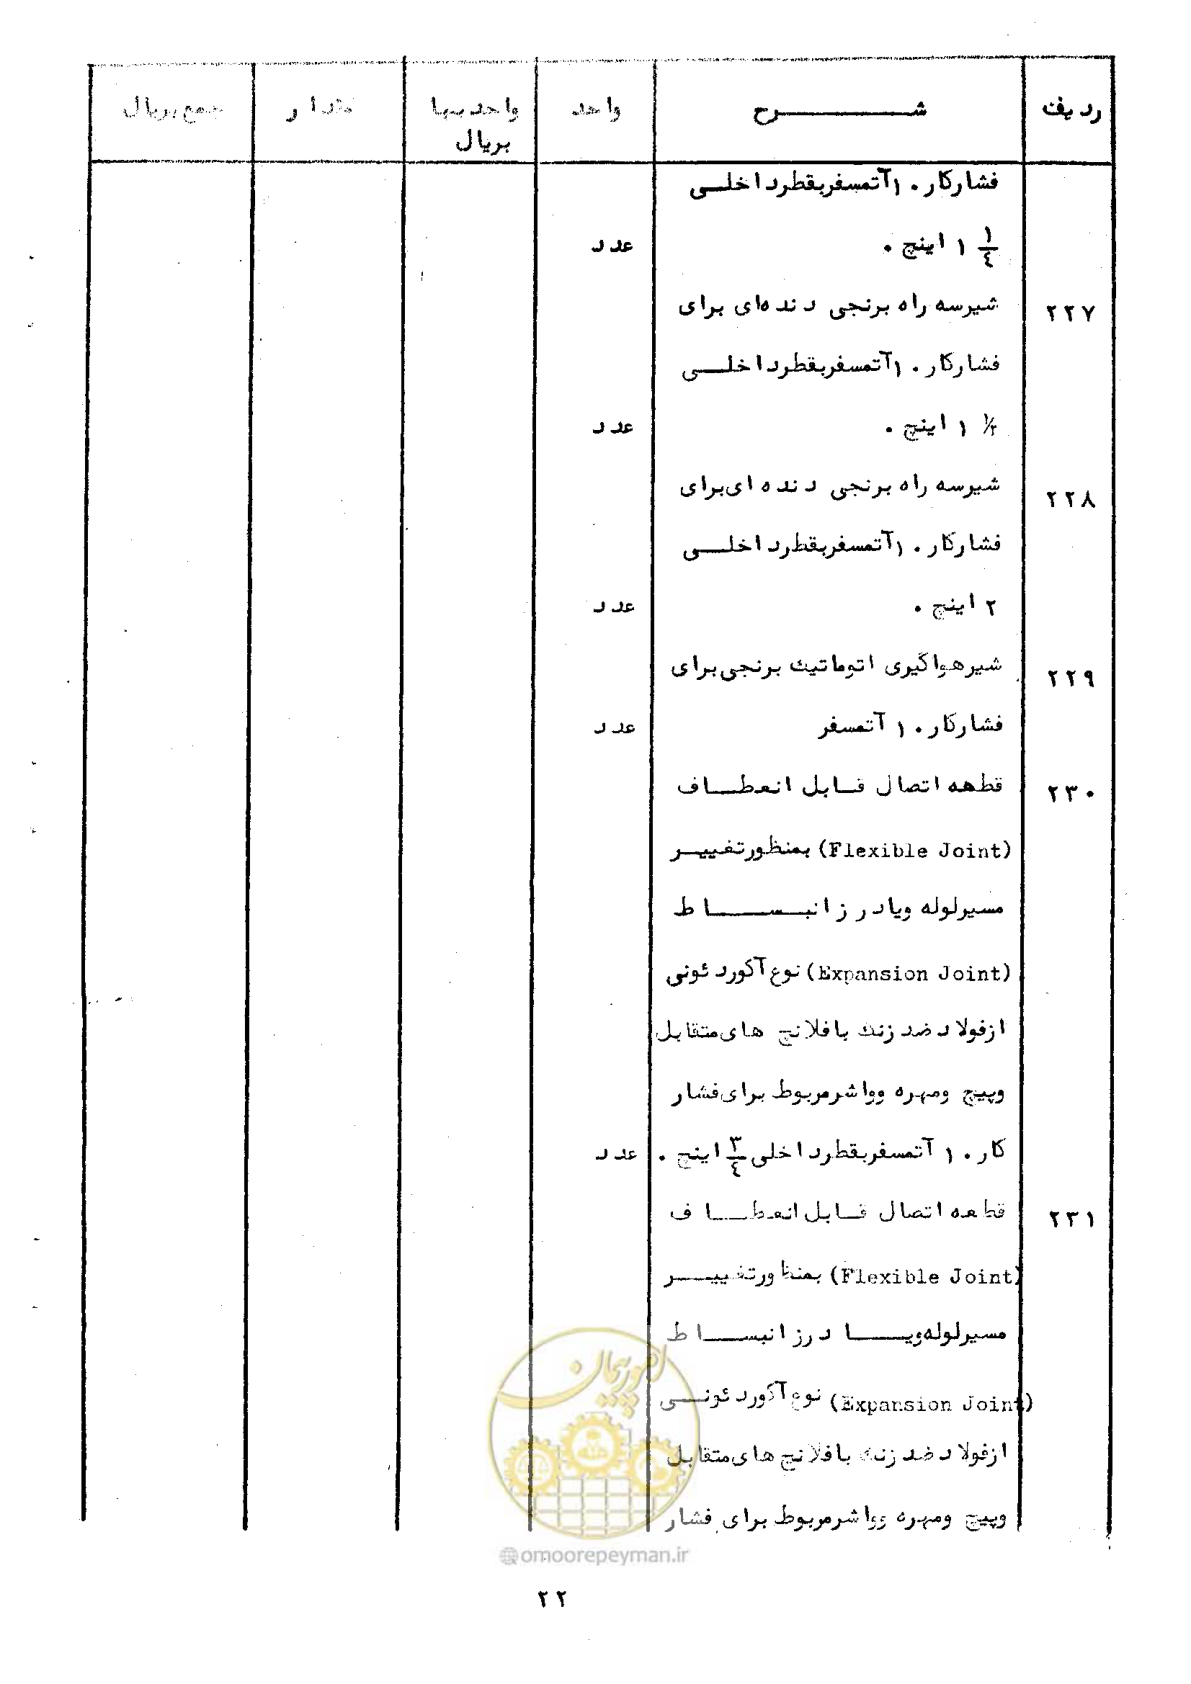 ردیف شـــــرح واحد واحدبها بریال مقدار جمع‌بریال
فشارکار ۱۰ آتمسفربقطرداخلـــی
۱ ۱/۴ اینچ . عدد
۲۲۷ شیرسه راه برنجی دنده‌ای برای
فشارکار ۱۰ آتمسفربقطرداخلـــی
۱ ۱/۲ اینچ . عدد
۲۲۸ شیرسه راه برنجی دنده ای‌برای
فشارکار ۱۰ آتمسفربقطرداخلـــی
۲ اینچ . عدد
۲۲۹ شیرهواگیری اتوماتیک برنجی‌برای
فشارکار ۱۰ آتمسفر عدد
۲۳۰ قطعه اتصال قــابل انعطــاف
(Flexible Joint) بمنظورتغییــر
مسیرلوله ویادر زانبـســـاط
(Expansion Joint) نوع آکوردئونی
ازفولادضدزنگ بافلانچ های‌متقابل
وپیچ ومهره وواشرمربوط برای‌فشار
کار ۱۰ آتمسفربقطرداخلی ۳/۴ اینچ . عدد
۲۳۱ قطعه اتصال قــابل‌انعطــاف
(Flexible Joint) بمنظورتغییــر
مسیرلوله‌ویـــا درزانبســاط
(Expansion Joint) نوع آکوردئونــی
ازفولادضدزنگ بافلانچ های‌متقابل
وپیچ ومهره وواشرمربوط برای فشار
امور پیمان
@omoorepeyman.ir
۲۲